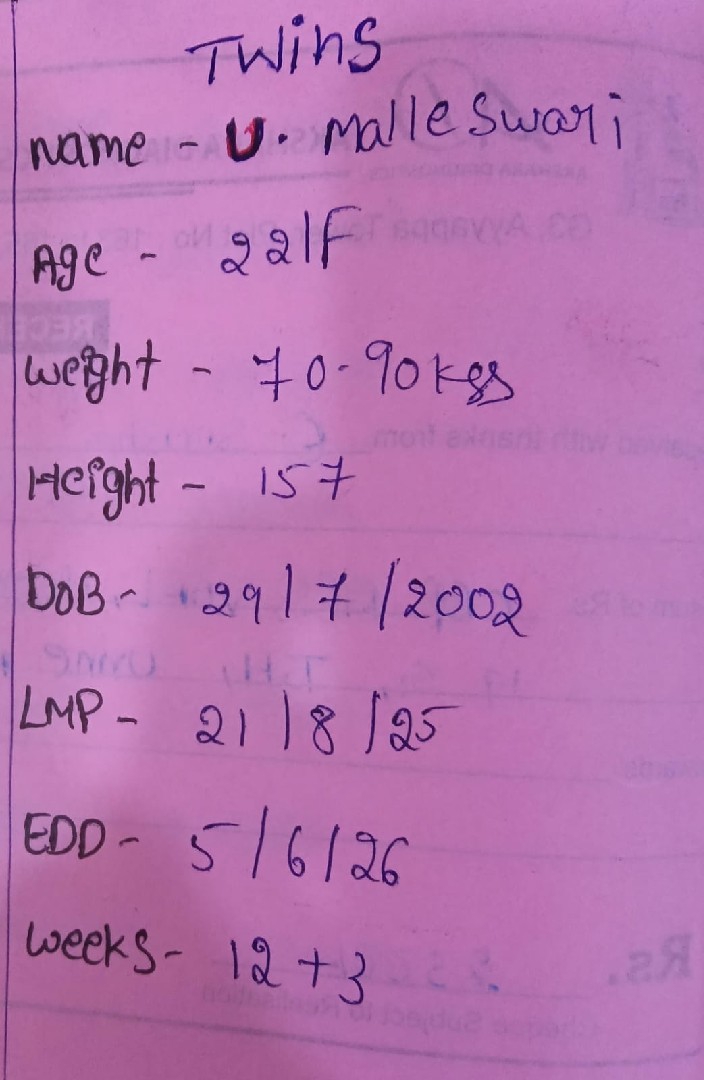 Twins
name - U. Malleswari
Age - 22/F
weight - 70-90 kgs
Height - 157
DOB - 29/7/2002
LMP - 21/8/25
EDD - 5/6/26
weeks - 12+3
Rs.